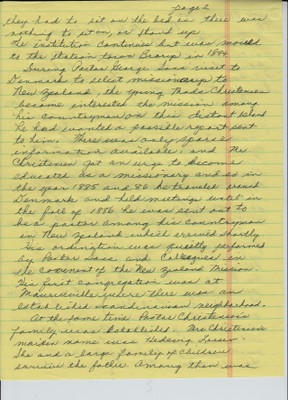 page 2
they had to sit on the bed as there was
nothing to sit on or stand up.
The institution continues but was moved
to the station town Brørup in 1890
During Pastor George Sass visit to
Denmark to select missionary to
New Zealand, the young Mads Christensen
became interested the mission among
his countrymen on this distant Island
He had wanted a possible report sent
to him. There was only sparse
information available. and Mr
Christensen got an urge to become
educated as a missionary and so in
the year 1885 and 86 he traveled around
Denmark and held meetings until in
the fall of 1886 he was sent out to
be a pastor among his countrymen
in New Zealand which arrived shortly
His ordination was quietly performed
by Pastor Sass and Colleagues in
the covenent of the New Zealand Mission.
His first congregation was at
Mauriceville where there was an
established scandinavian neighborhood.
At the same time Pastor Christensen's
family was Established. Mrs Christensen
maiden name was Hedevig Larsen.
She and a large family of children
survive the father Among them was